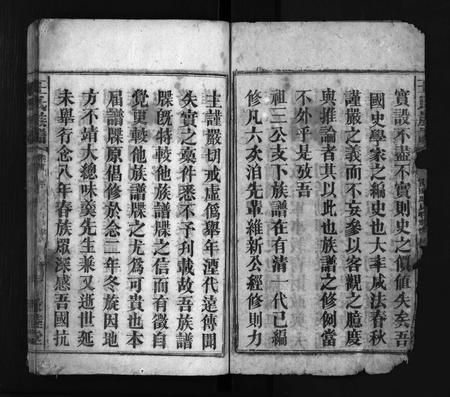 實設不盡不實則史之價值失矣吾
國史學家之編史也大率咸法春秋
謹嚴之義而不妄參以客觀之臆度
與推論者其以此也族譜之修例當
不外乎是攷吾
祖三公支下族譜在有清一代已編
修凡六次洎先輩維新公經修則力
主謹嚴切戒虛僞舉年湮代遠傳聞
失實之藁件悉不予刋載故吾族譜
牒旣特較他族譜牒之信而有徵自
覺更較他族譜牒之尤爲可貴也本
屆譜牒原倡修於念二年冬族因地
方不靖大總味羹先生兼又逝世延
未舉行念八年春族眾深感吾國抗
王氏族譜